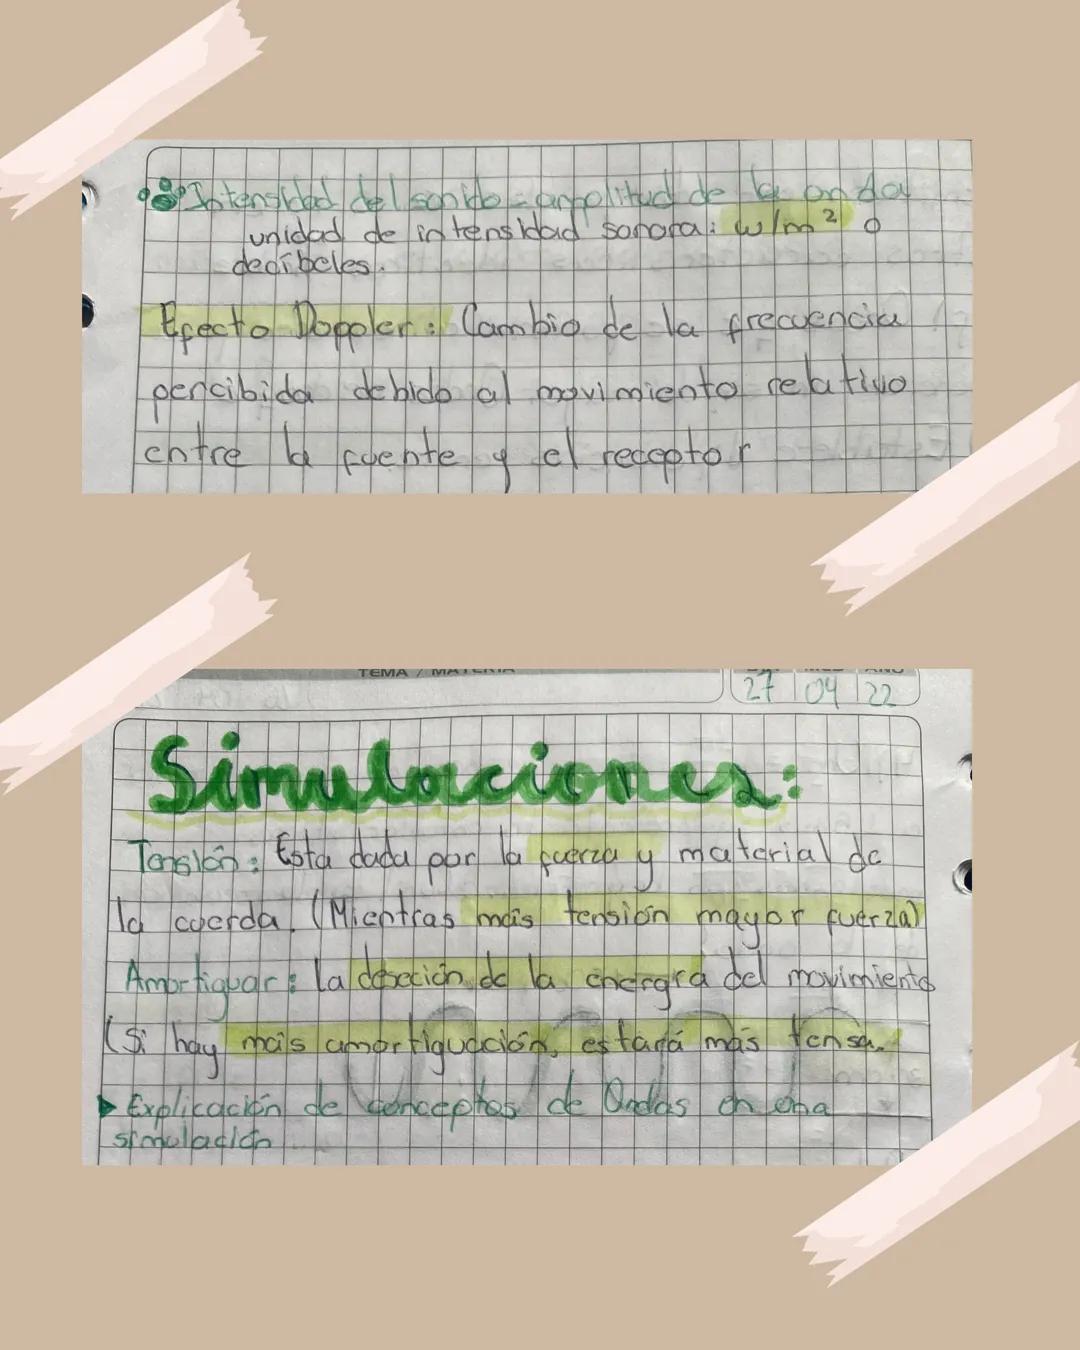 Intensidad del sonido = amplitud de la onda
unidad de intensidad sonora: w/m² o
decibeles.
Efecto Doppler: Cambio de la frecuencia
percibida debido al movimiento relativo
entre la fuente y el receptor
TEMA / MATERIA
27 04 22
Simulaciones:
Tensión: Esta dada por la fuerza y material de
la cuerda. (Mientras más tensión mayor fuerza)
Amortiguar: la deseción de la energía del movimiento
(Si hay más amortiguación, estará más tensa.
Explicación de conceptos de Ondas en una
simulación